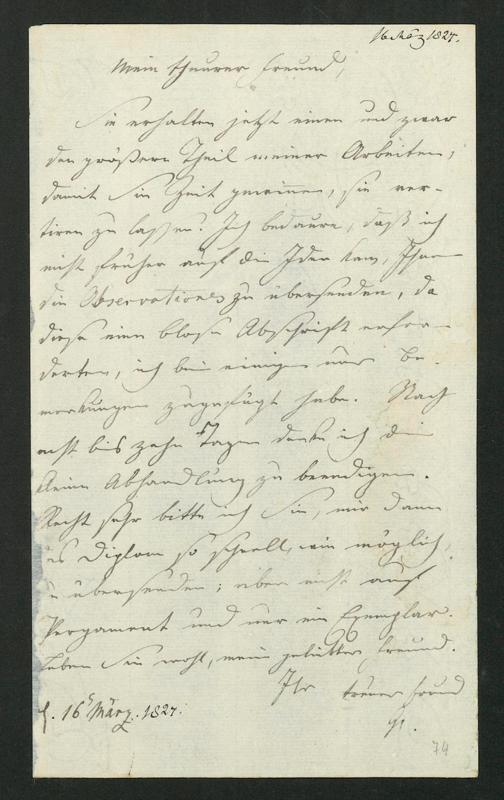 16 März 1827.
Mein theurer Freund,
Sie erhalten jetzt einen und zwar
den größern Theil meiner Arbeiten,
damit Sie Zeit gewinnen, sie ver-
tiren zu lassen. Ich bedaure, daß ich
nicht früher auf die Idee kam, Ihnen
die Observationes zu übersenden, da
diese eine bloße Abschrift erfor-
derten, ich bei einigen nur Be-
merkungen zugefügt habe. Nach
acht bis zehn Tagen denke ich die
kleine Abhandlung zu beendigen.
Recht sehr bitte ich Sie, mir dann
das Diplom so schnell, wie möglich,
zu übersenden; aber nicht auf
Pergament und nur ein Exemplar.
Leben Sie wohl, mein geliebter Freund.
Ihr treuer Freund
16 März. 1827.
74